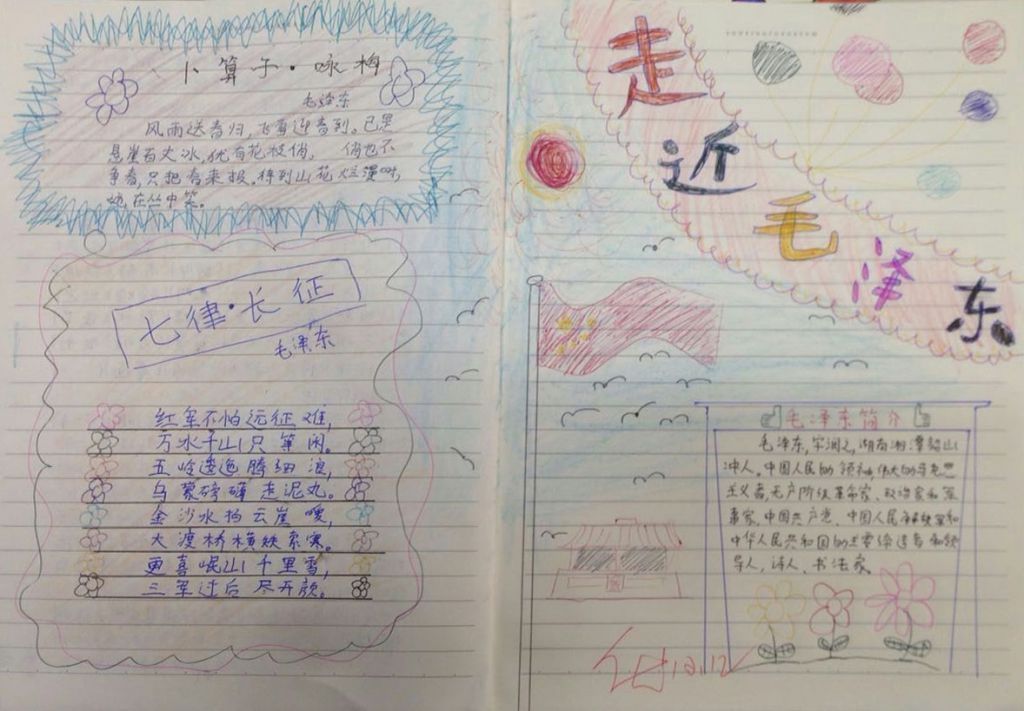 卜算子·咏梅
毛泽东
风雨送春归,飞雪迎春到。已是
悬崖百丈冰,犹有花枝俏。 俏也不
争春,只把春来报。待到山花烂漫时,
她在丛中笑。
七律·长征
毛泽东
红军不怕远征难,
万水千山只等闲。
五岭逶迤腾细浪,
乌蒙磅礴走泥丸。
金沙水拍云崖暖,
大渡桥横铁索寒。
更喜岷山千里雪,
三军过后尽开颜。
走近毛泽东
毛泽东简介
毛泽东,字润之,湖南湘潭韶山
冲人。中国人民的领袖,伟大的马克思
主义者,无产阶级革命家、政治家和军
事家,中国共产党、中国人民解放军和
中华人民共和国的主要缔造者和领
导人,诗人、书法家。
12.12